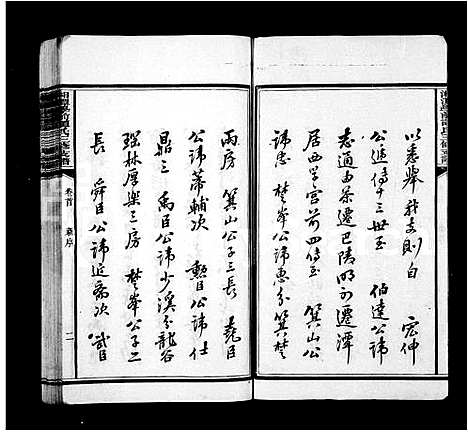 以悉舉我支則自 宏仲
公進傳十三世至 伯達公諱
志通由茶遷巴陵明初遷潭
居西学宫前四傳至 箕山公
諱忠 楚峯公諱惠分箕楚
兩房 箕山公子三長 堯臣
公諱 輔次 勲臣公諱仕
鼎三 禹臣公諱少溪分龍谷
瑶林厚樂三房 楚峯公子二
長 舜臣公諱近齋次 武臣
卷首 序 二